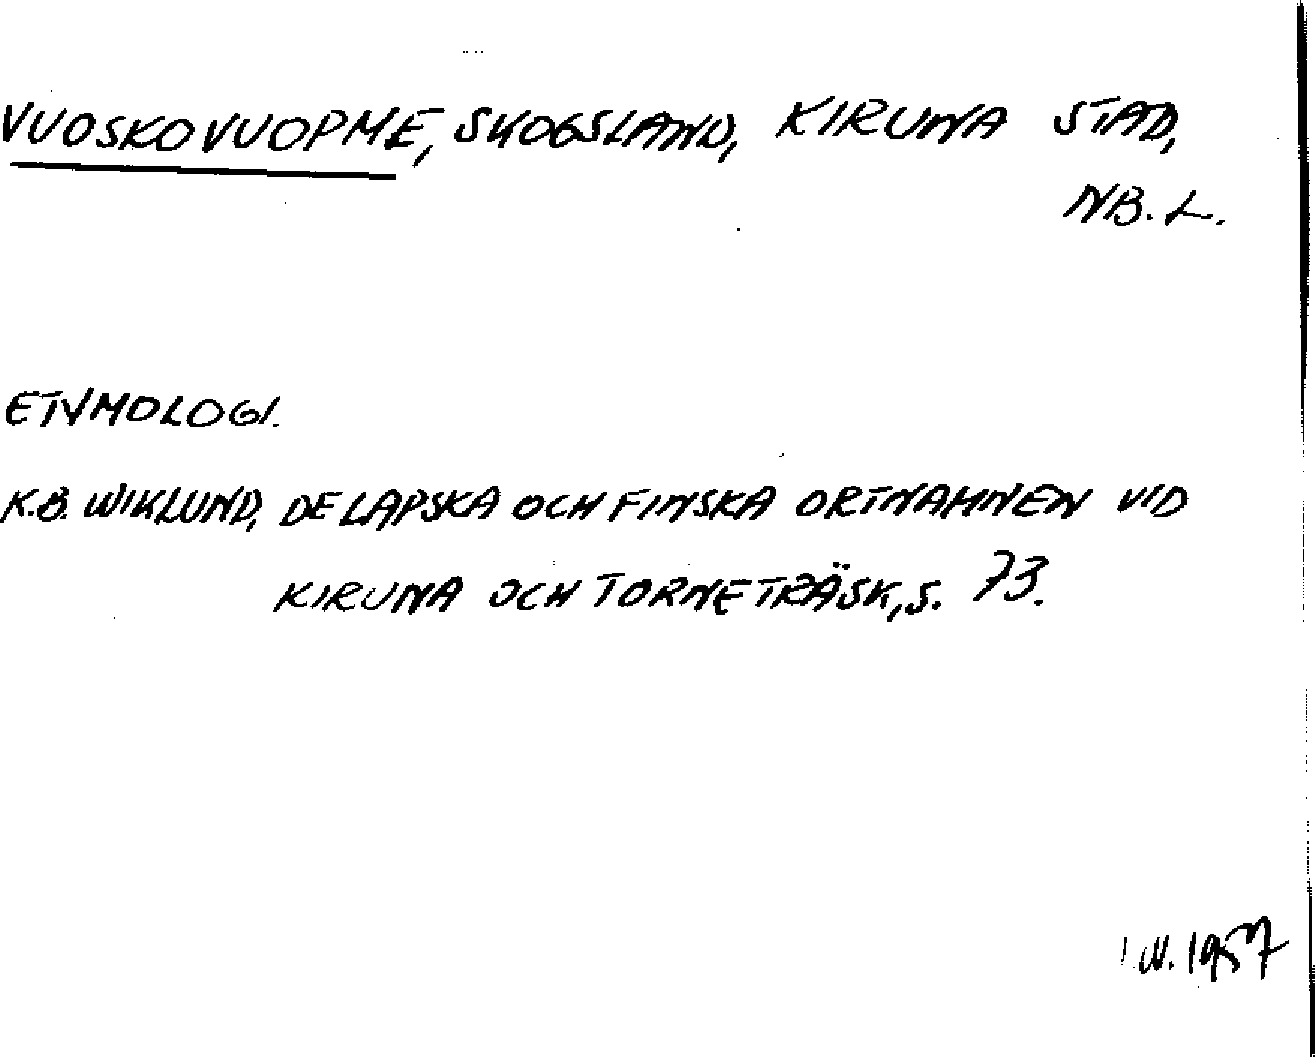 VUOSKOVUOPME, SKOGSLAND, KIRUNA STAD,
NB. L.
ETYMOLOGI.
K.B. WIKLUND, DE LAPSKA OCH FINSKA ORTNAMNEN VID
KIRUNA OCH TORNETRÄSK, S. 73.
W. 1957